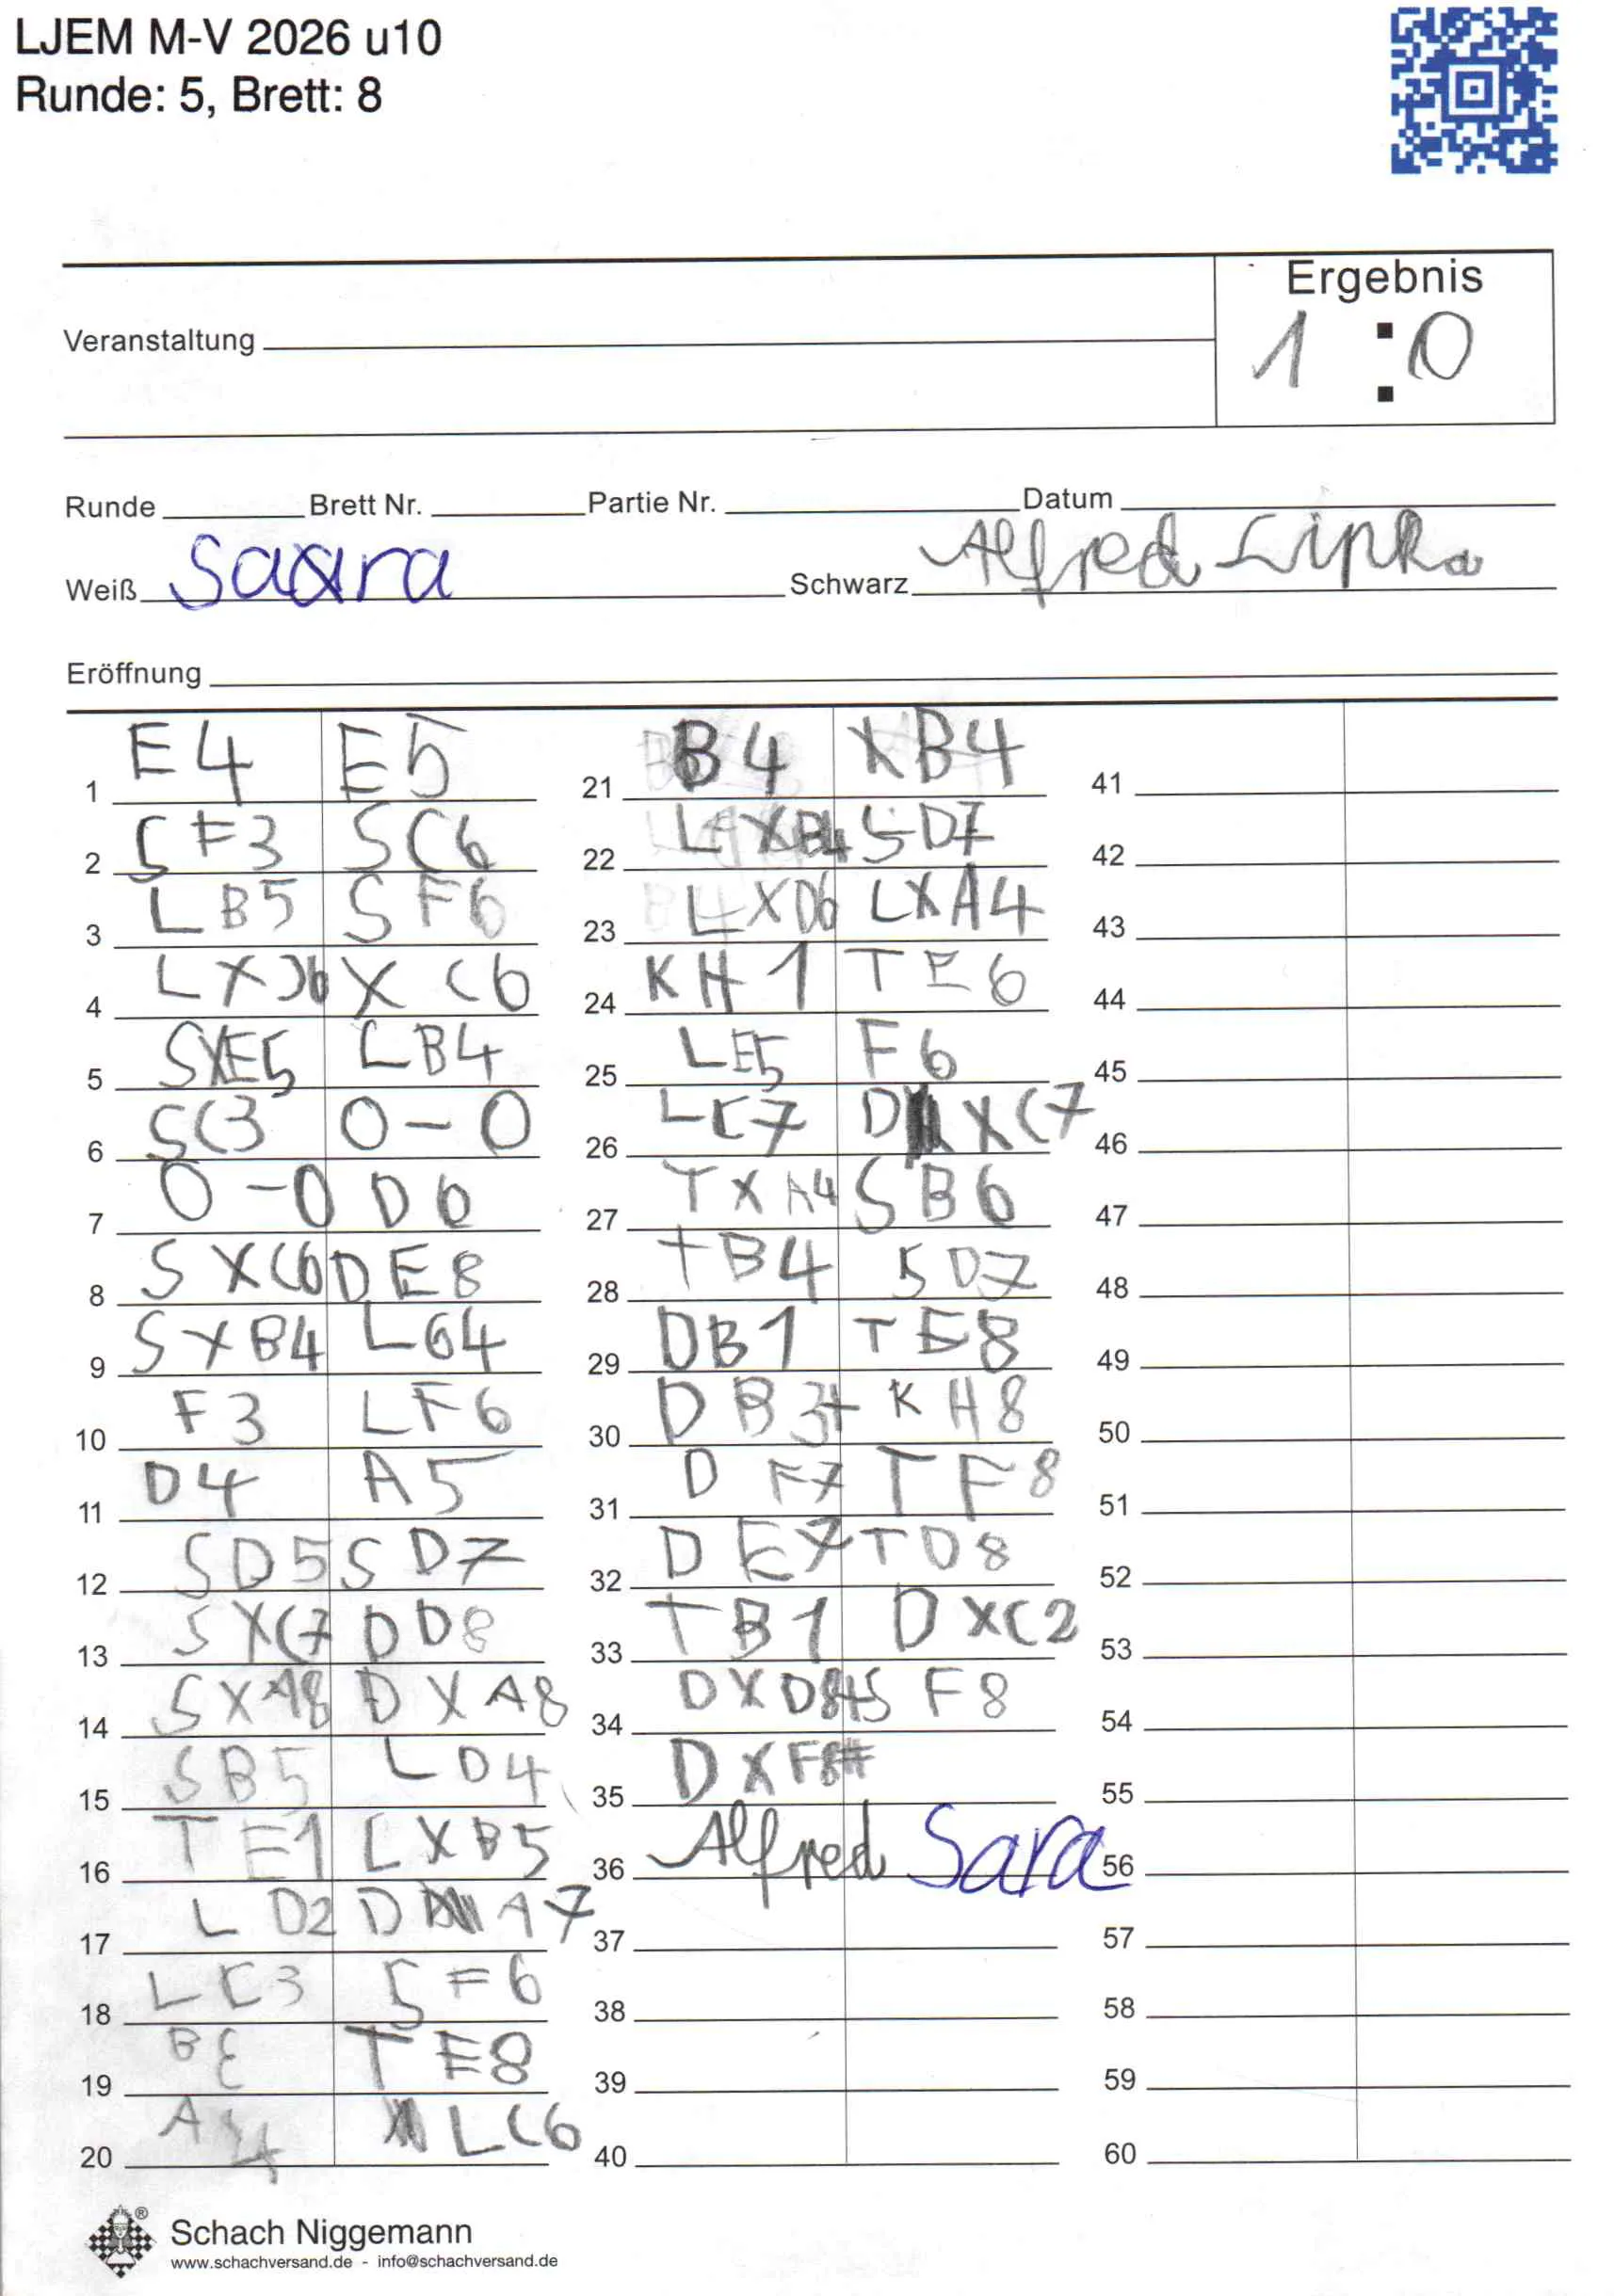 LJEM M-V 2026 u10
Runde: 5, Brett: 8
Ergebnis
1 : 0
Veranstaltung
Runde Brett Nr. Partie Nr. Datum
Weiß Schwarz Alfred Lipka
Eröffnung
1 E4 E5
2 SF3 SC6
3 LB5 SF6
4 LXC6 XC6
5 SXE5 LB4
6 SC3 0-0
7 0-0 D6
8 SXC6 DE8
9 SXB4 LG4
10 F3 LF6
11 D4 A5
12 SD5 SD7
13 SXC7 DD8
14 SXA8 DXA8
15 SB5 LD4
16 TE1 LXB5
17 LD2 D A7
18 LC3 SF6
19 B TE8
20 A4 LC6
21 B4 XB4
22 LXB4 SD7
23 LXD6 LXA4
24 KH1 TE6
25 LE5 F6
26 LC7 D XC7
27 TXA4 SB6
28 TB4 SD7
29 DB1 TE8
30 DB3+ KH8
31 DF7 TF8
32 DE7 TD8
33 TB1 DXC2
34 DXD8+ SF8
35 DXF8#
36 Alfred Sara
37
38
39
40
41
42
43
44
45
46
47
48
49
50
51
52
53
54
55
56
57
58
59
60
Schach Niggemann
www.schachversand.de - info@schachversand.de